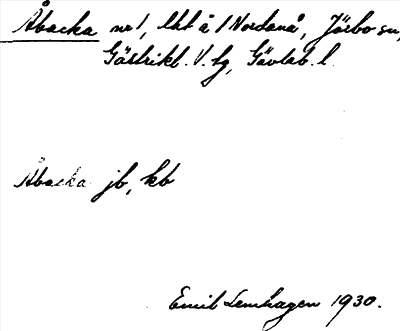 Åbacka nr 1, lht å 1 Nordanå, Järbo sn,
Gästrikl. V. tg, Gävleb. l.
Åbacka jb, kb
Emil Lenhagen 1930.